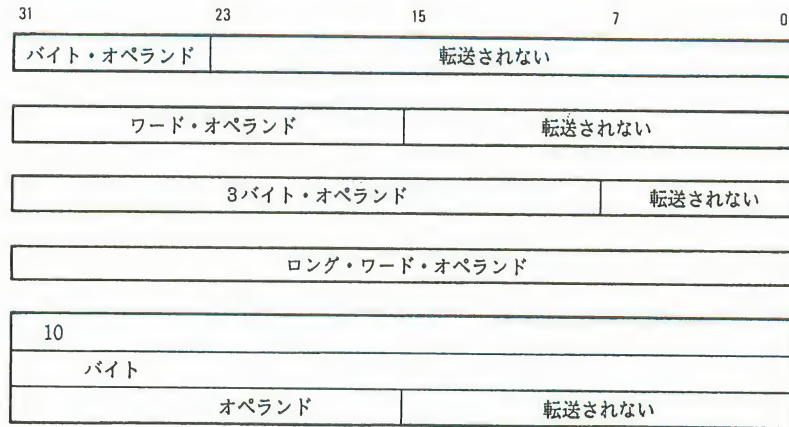 31 23 15 7 0
バイト・オペランド 転送されない
ワード・オペランド 転送されない
3バイト・オペランド 転送されない
ロング・ワード・オペランド
10
バイト
オペランド 転送されない